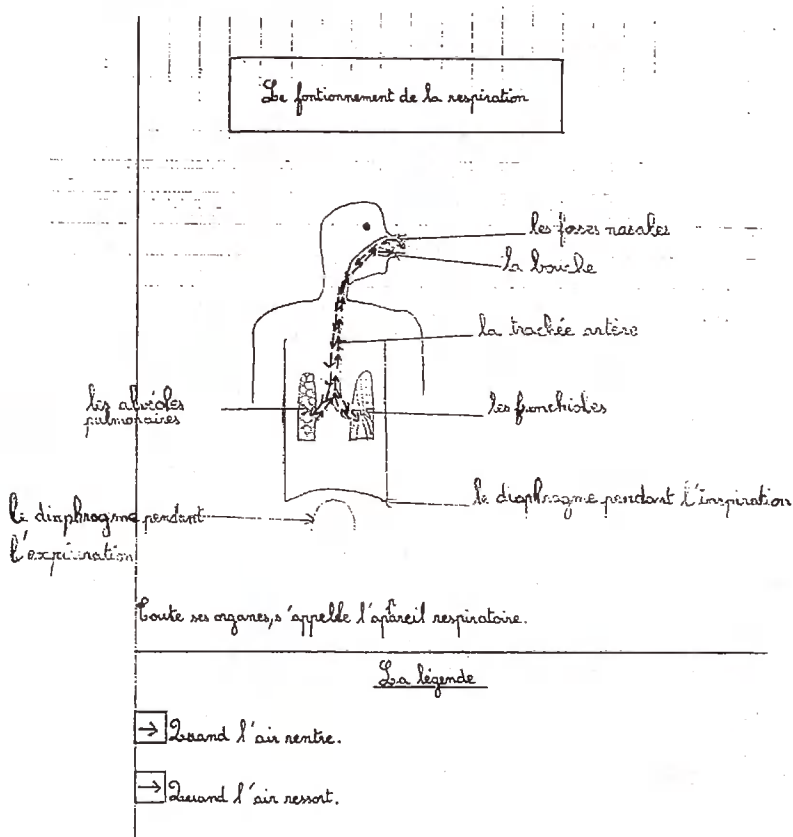 Le fontionnement de la respiration
les fosses nasales
la bouche
la trachée artère
les alvéoles
pulmonaires
les
le diaphragme pendant l'inspiration
le diaphragme pendant
l'expiration
Toute ses organes, s'appelle l'appareil respiratoire.
La légende
Quand l'air rentre.
Quand l'air ressort.